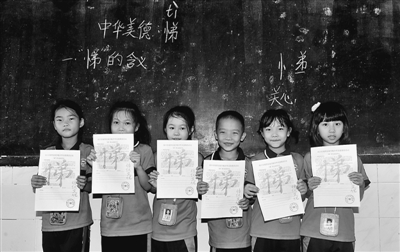 中华美德:悌
一“悌”的含义
小 弟
关心
悌
悌
悌
悌
悌
悌